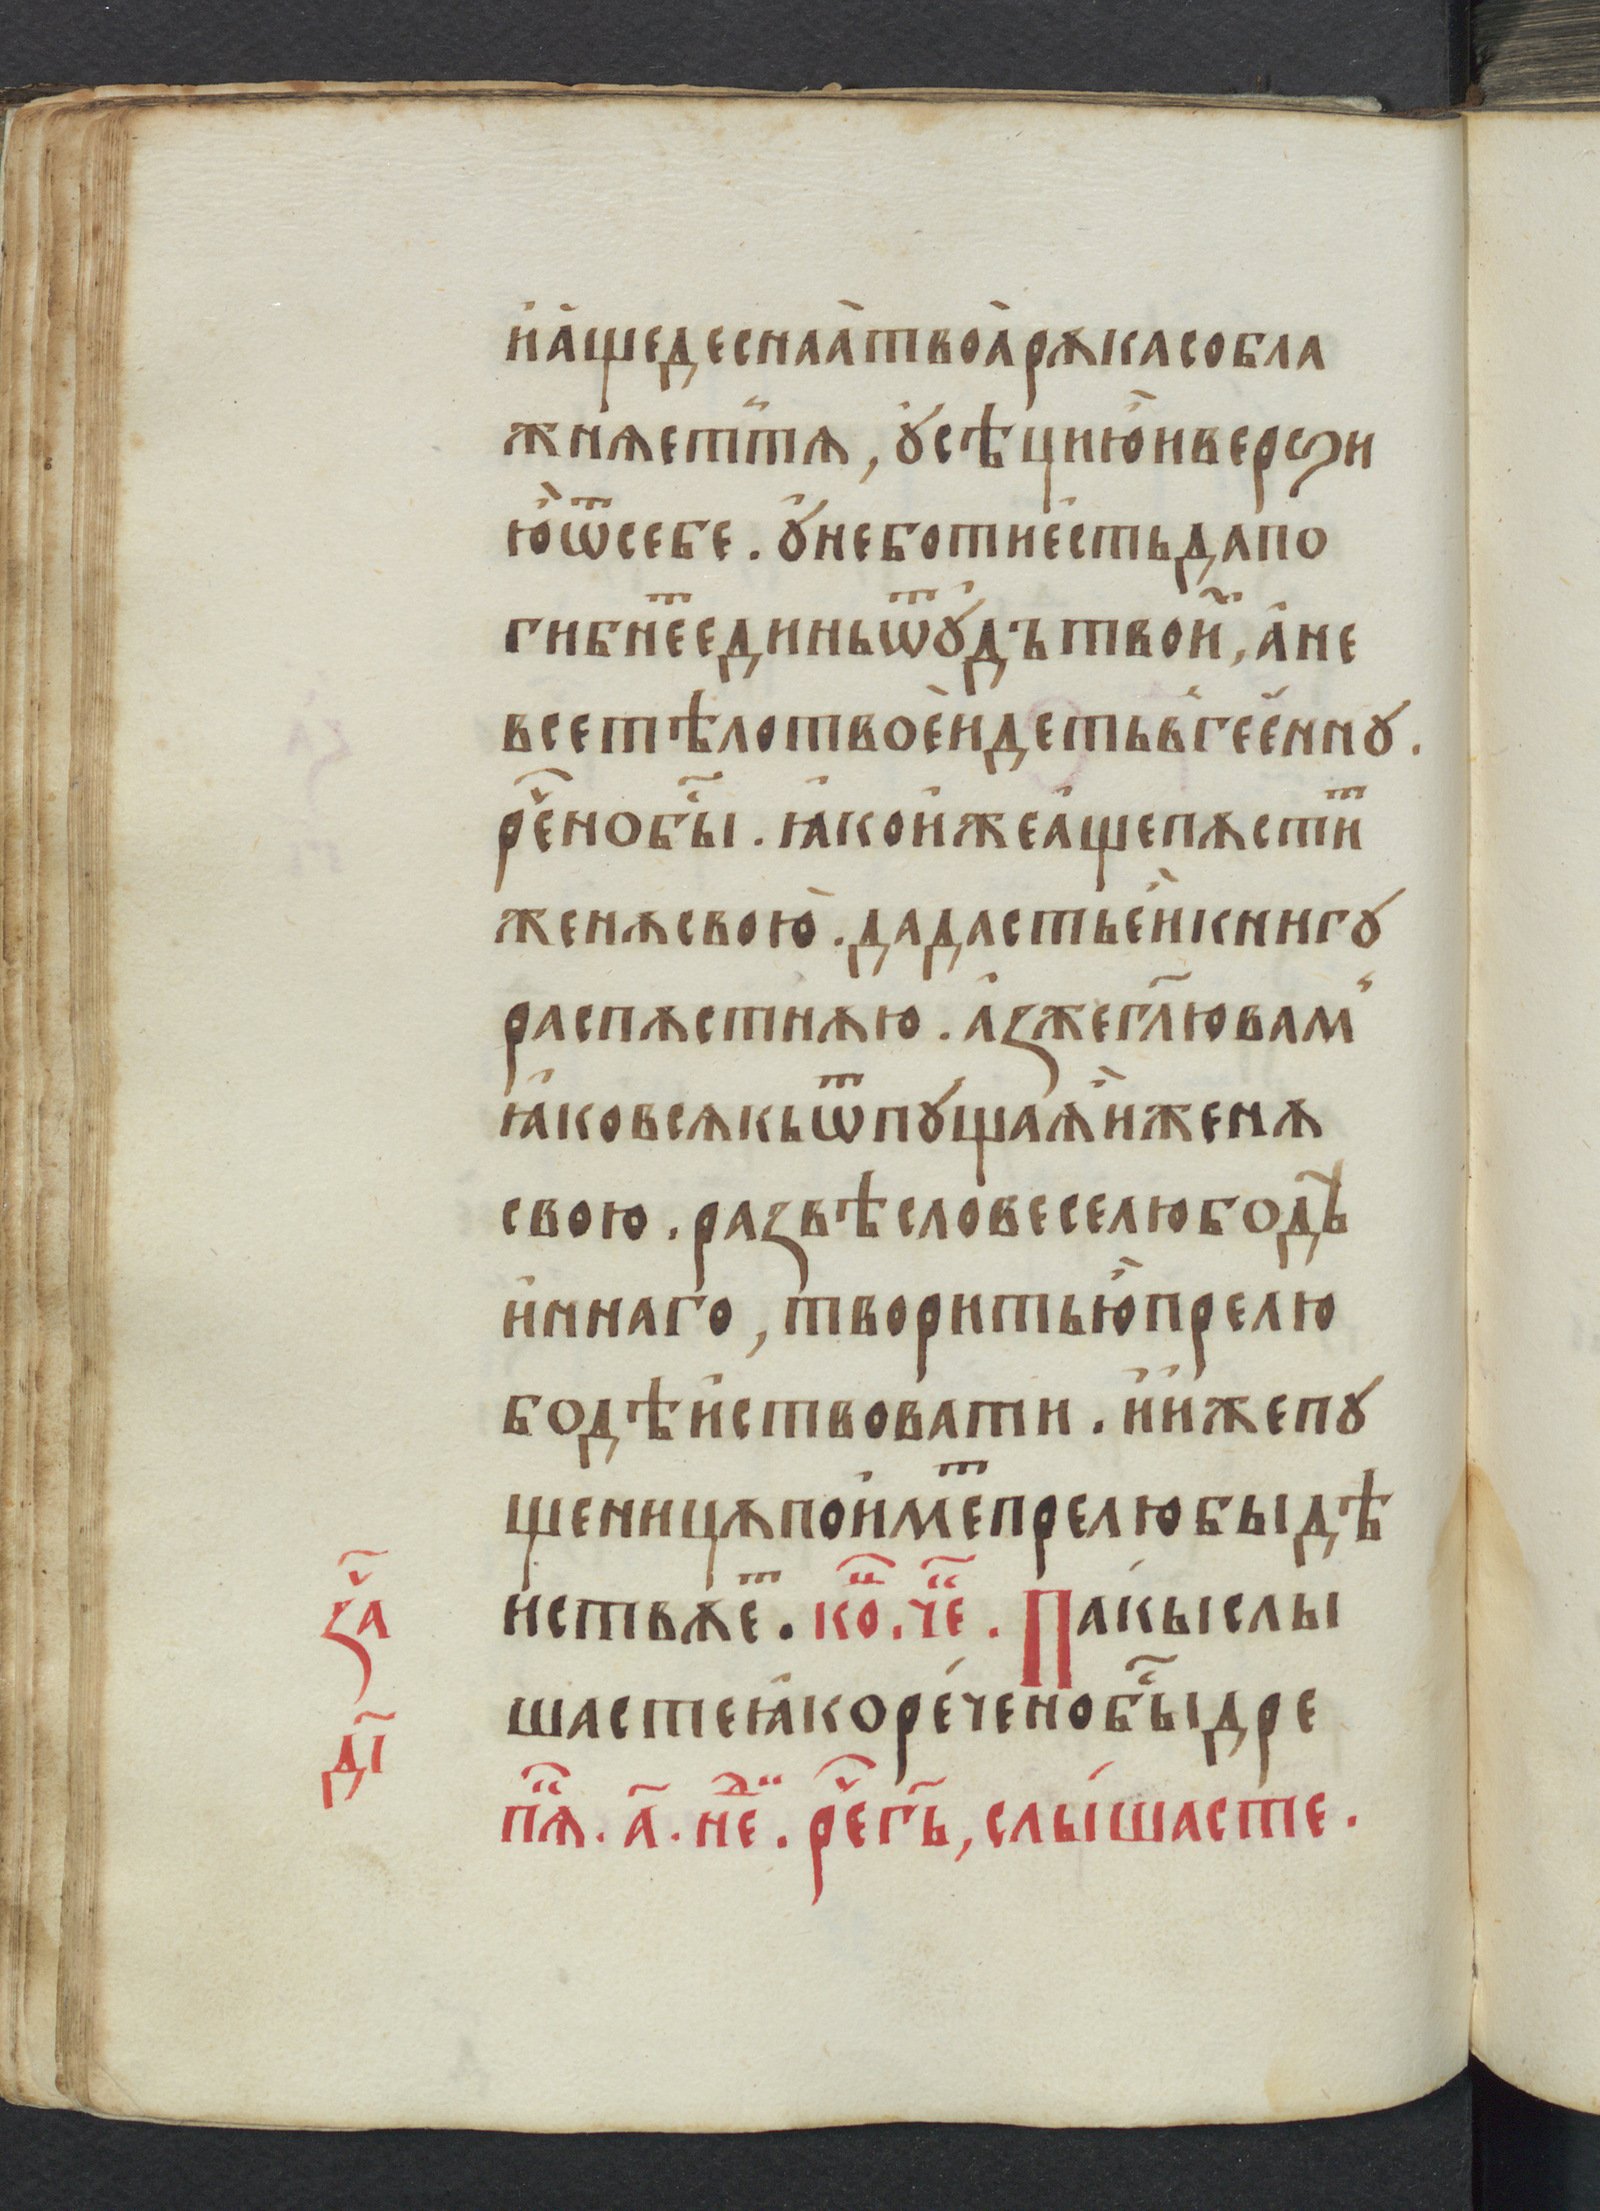 и҆а҆щедеснаа҆твоа҆рѫкасобла
жнѧеттѧ, ꙋ҆сѣциюи҆верꙁи
ю҆ѿсебе. ꙋ҆неботие҆стьдапо
гибнеⷮединьѿꙋ҆дътвои҆, а҆не
всетѣлотвое҆идетьвгее҆ннꙋ.
рⷱ҇енобⷭ҇ы. ꙗ҆кои҆жеа҆щепѫстиⷮ
женѫсвою. дадастье҆и҆книгꙋ
распѫстнѫю. а҆ꙁжегл҃ювам
ꙗ҆ковсѧкьѿпꙋщаѧ҆и҆женѫ
свою. раꙁвѣсловеселюбодѣ
и҆ннаго, творитью҆прелю
бодѣи҆ствовати. и҆и҆жепꙋ
щеницѫпои҆меⷮпрелюбыдѣ
и҆ствѫеⷮ. коⷰ҇. чеⷭ҇. Пакыслы
шастеꙗ҆кореченобⷭ҇ыдре
пⷭ҇ѧ. а҃. неⷣ. рⷱ҇егь, слышасте.
ꙁаⷱ҇
д҃і